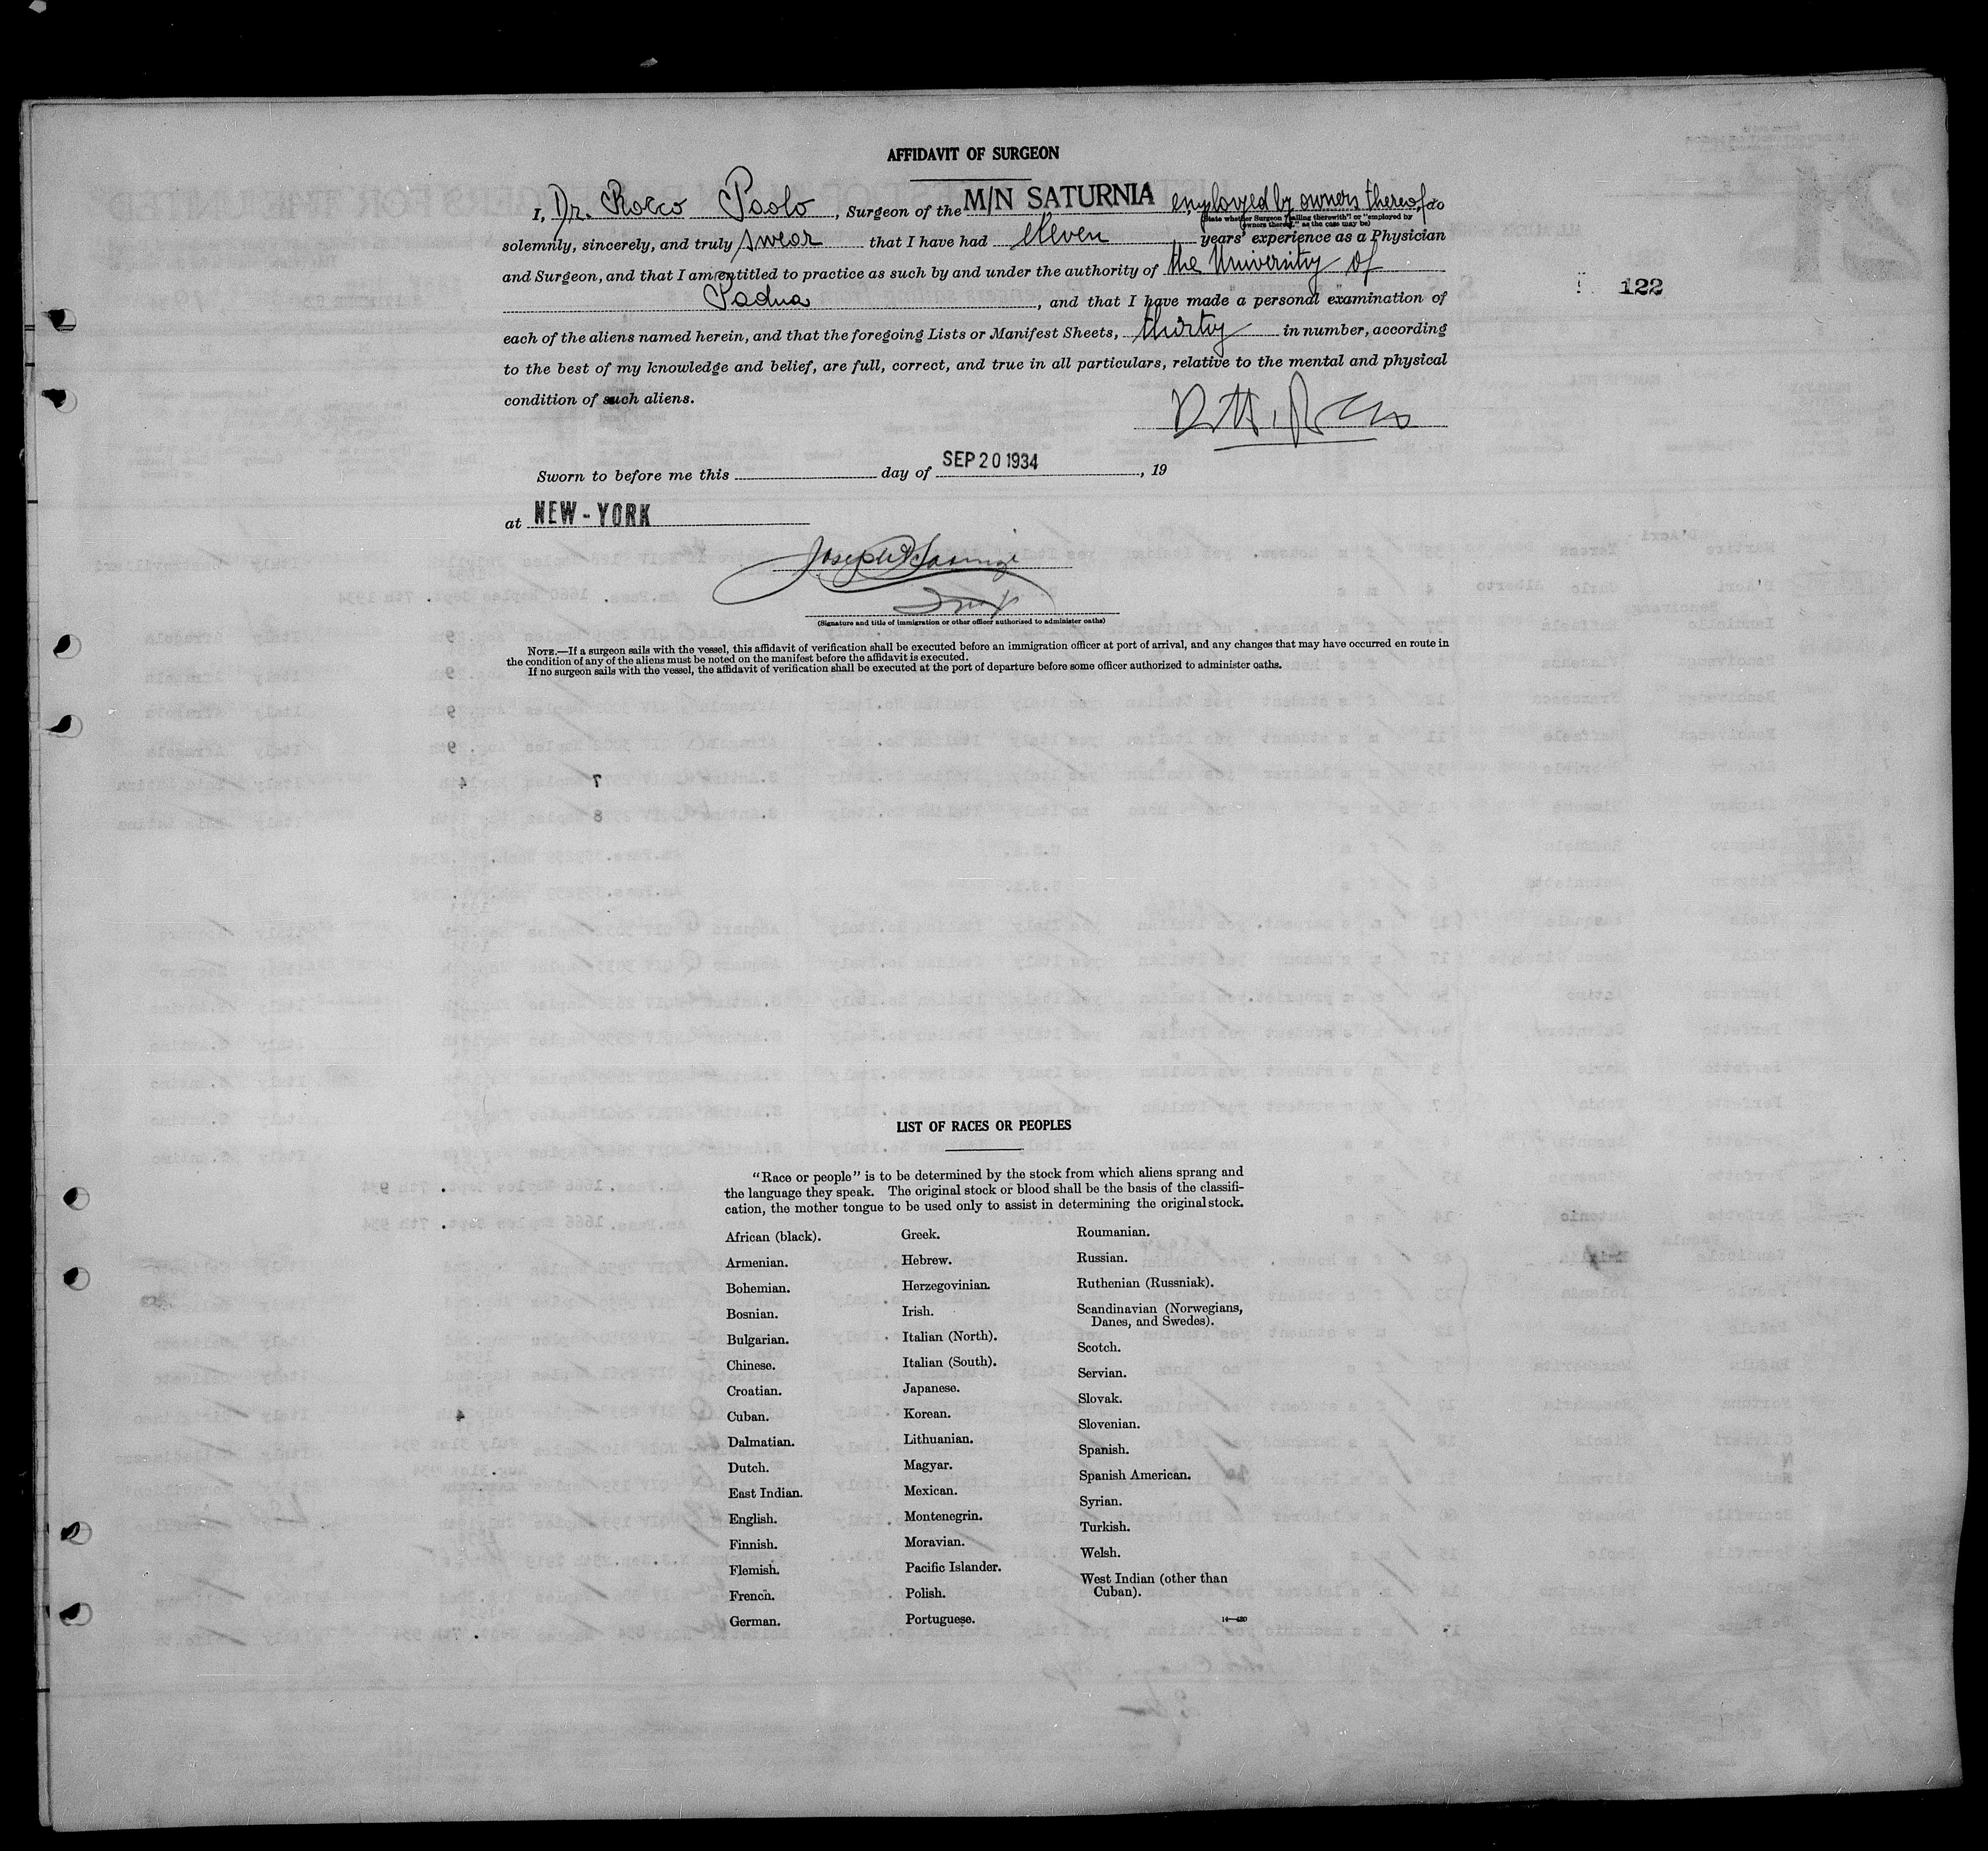 AFFIDAVIT OF SURGEON
I, Dr. Rocco Paolo, Surgeon of the M/N SATURNIA employed by owners thereof, do
(State whether Surgeon "sailing therewith" or "employed by
owners thereof," as the case may be)
solemnly, sincerely, and truly swear that I have had eleven years' experience as a Physician
and Surgeon, and that I am entitled to practice as such by and under the authority of the University of
Padua, and that I have made a personal examination of
122
each of the aliens named herein, and that the foregoing Lists or Manifest Sheets, thirty in number, according
to the best of my knowledge and belief, are full, correct, and true in all particulars, relative to the mental and physical
condition of such aliens.
Sworn to before me this day of SEP 20 1934, 19
at NEW-YORK
(Signature and title of immigration or other officer authorized to administer oaths)
NOTE.—If a surgeon sails with the vessel, this affidavit of verification shall be executed before an immigration officer at port of arrival, and any changes that may have occurred en route in
the condition of any of the aliens must be noted on the manifest before the affidavit is executed.
If no surgeon sails with the vessel, the affidavit of verification shall be executed at the port of departure before some officer authorized to administer oaths.
LIST OF RACES OR PEOPLES
"Race or people" is to be determined by the stock from which aliens sprang and
the language they speak. The original stock or blood shall be the basis of the classifi-
cation, the mother tongue to be used only to assist in determining the original stock.
African (black).
Armenian.
Bohemian.
Bosnian.
Bulgarian.
Chinese.
Croatian.
Cuban.
Dalmatian.
Dutch.
East Indian.
English.
Finnish.
Flemish.
French.
German.
Greek.
Hebrew.
Herzegovinian.
Irish.
Italian (North).
Italian (South).
Japanese.
Korean.
Lithuanian.
Magyar.
Mexican.
Montenegrin.
Moravian.
Pacific Islander.
Polish.
Portuguese.
Roumanian.
Russian.
Ruthenian (Russniak).
Scandinavian (Norwegians,
Danes, and Swedes).
Scotch.
Servian.
Slovak.
Slovenian.
Spanish.
Spanish American.
Syrian.
Turkish.
Welsh.
West Indian (other than
Cuban).